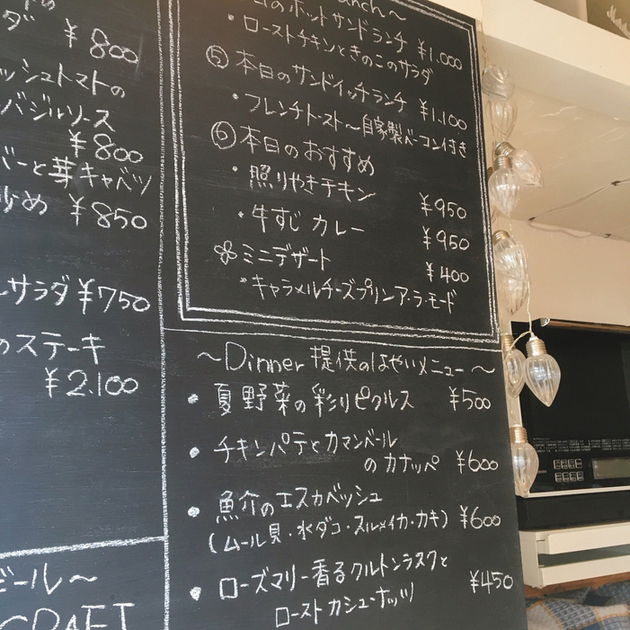 ダ ¥800
ッシュトマトの
バジルソース
¥800
バーと芽キャベツ
炒め ¥850
サラダ ¥750
のステーキ
¥2.100
ール〜
CRAFT
unch〜
のホットサンドランチ ¥1.000
・ローストチキンときのこのサラダ
⑤本日のサンドイッチランチ ¥1.100
・フレンチトースト〜自家製ベーコン付き
⑥本日のおすすめ
・照りやきチキン ¥950
・牛すじ カレー ¥950
ミニデザート ¥400
・キャラメルチーズプリンア・ラ・モード
〜Dinner 提供のはやいメニュー〜
・夏野菜の彩りピクルス ¥500
・チキンパテとカマンベール
のカナッペ ¥600
・魚介のエスカベッシュ
(ムール貝・水ダコ・スルメイカ・カキ) ¥600
・ローズマリー香るクルトンラスクと
ローストカシューナッツ ¥450